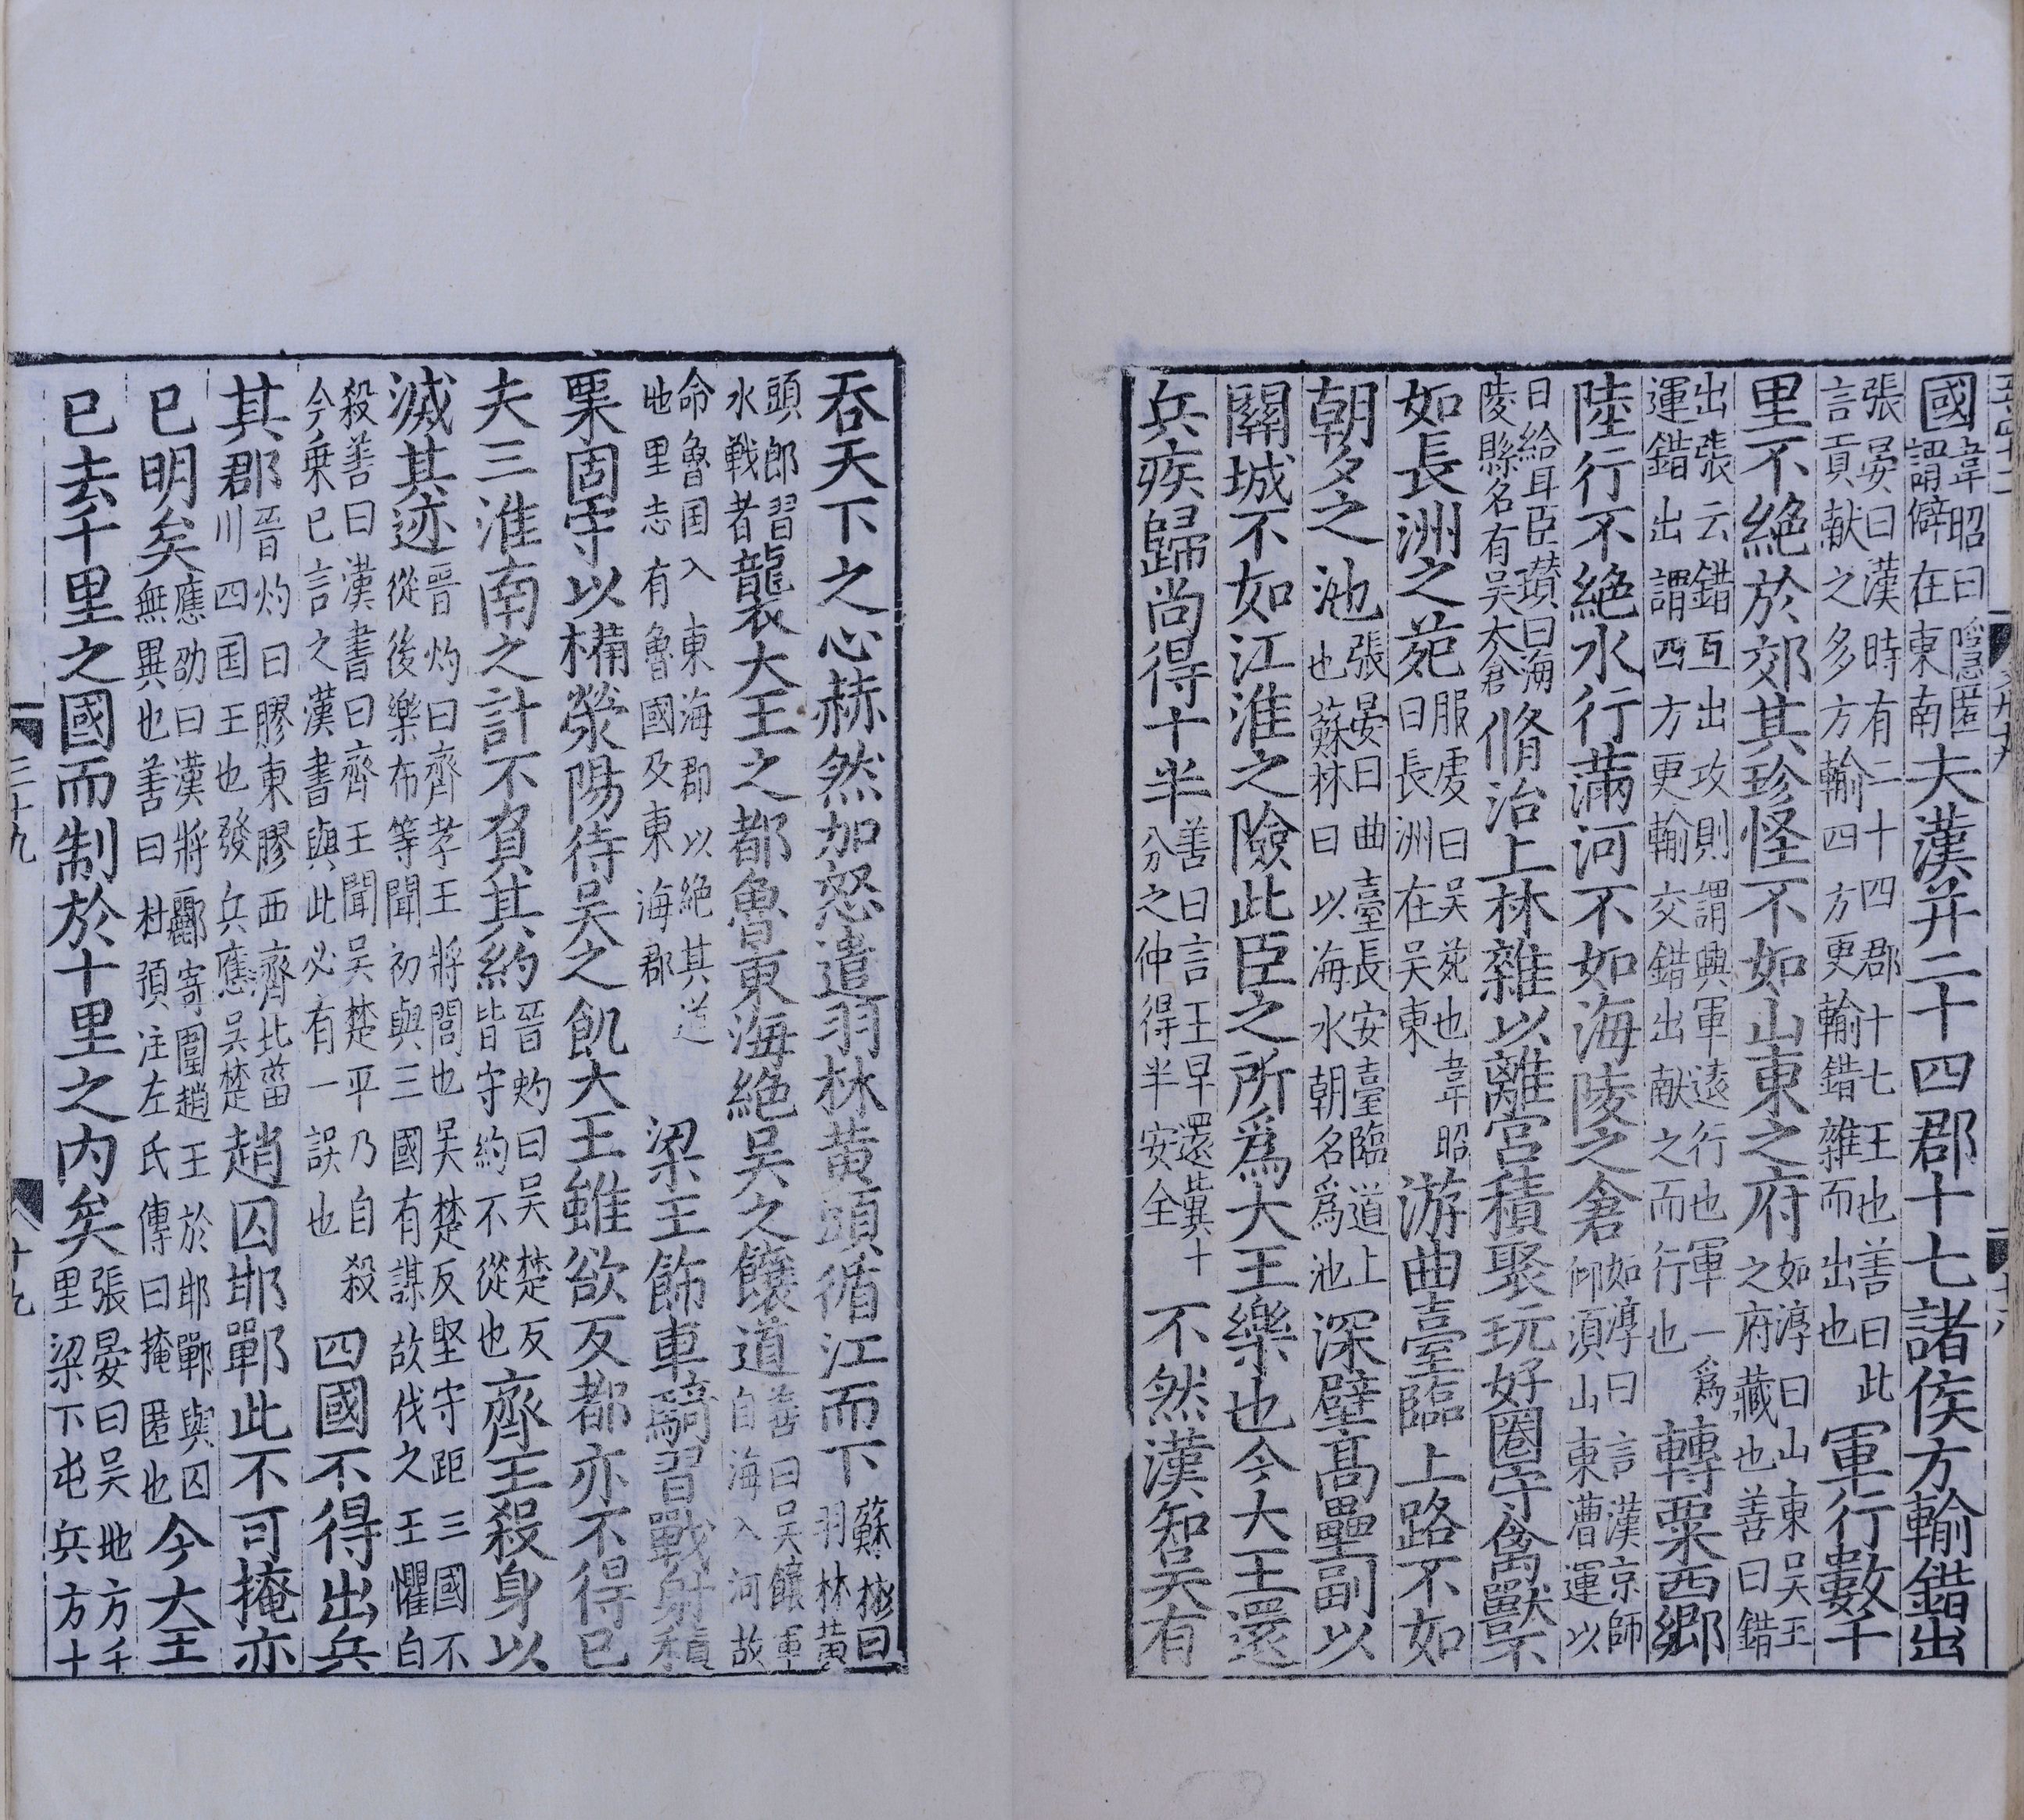 國韋昭曰隱匿謂僻在東南夫漢并二十四郡十七諸侯方輸錯出
張晏曰漢時有二十四郡十七王也善曰此言貢献之多方輸四方更輸錯雜而出也軍行數千
里不絕於郊其珍怪不如山東之府如淳曰山東吴王之府藏也善曰錯
出張云錯互出攻則謂興軍遠行也軍一爲運錯出謂四方更輸交錯出献之而行也轉粟西鄉
陸行不絕水行滿河不如海陵之倉如淳曰言漢京師仰須山東漕運以
曰給耳臣瓉曰海陵縣名有吴太倉脩治上林雜以離宮積聚玩好圈守禽獸不
如長洲之苑服虔曰吴苑也韋昭曰長洲在吴東游曲臺臨上路不如
朝夕之池張晏曰曲臺長安臺臨道上也蘇林曰以海水朝名爲池深壁高壘副以
關城不如江淮之險此臣之所爲大王樂也今大王還
兵疾歸尚得十半善曰言王早還兾十分之仲得半安全不然漢知吴有
吞天下之心赫然加怒遣羽林黄頭循江而下蘇林曰羽林黄
頭郎習水戦者襲大王之都魯東海絕吴之饟道善曰吴饟軍自海入河故
命魯国入東海郡以絕其道地里志有魯國及東海郡梁王飾車騎習戰射積
粟固守以備滎陽待吴之飢大王雖欲反都亦不得已
夫三淮南之計不負其約晉灼曰吴楚反皆守約不從也齊王殺身以
滅其迹晉灼曰齊孝王將閭也吴楚反堅守距三國不從後樂布等聞初與三國有謀故伐之王懼自
殺善曰漢書曰齊王聞吴楚平乃自殺今乗已言之漢書與此必有一誤也四國不得出兵
其郡晉灼曰膠東膠西齊北菑川四国王也發兵應吴楚趙囚邯鄲此不可掩亦
已明矣應劭曰漢將酈寄圍趙王於邯鄲與囚無異也善曰杜預注左氏傳曰掩匿也今大王
已去千里之國而制於十里之内矣張晏曰吴地方千里梁下屯兵方十
三十九
十九